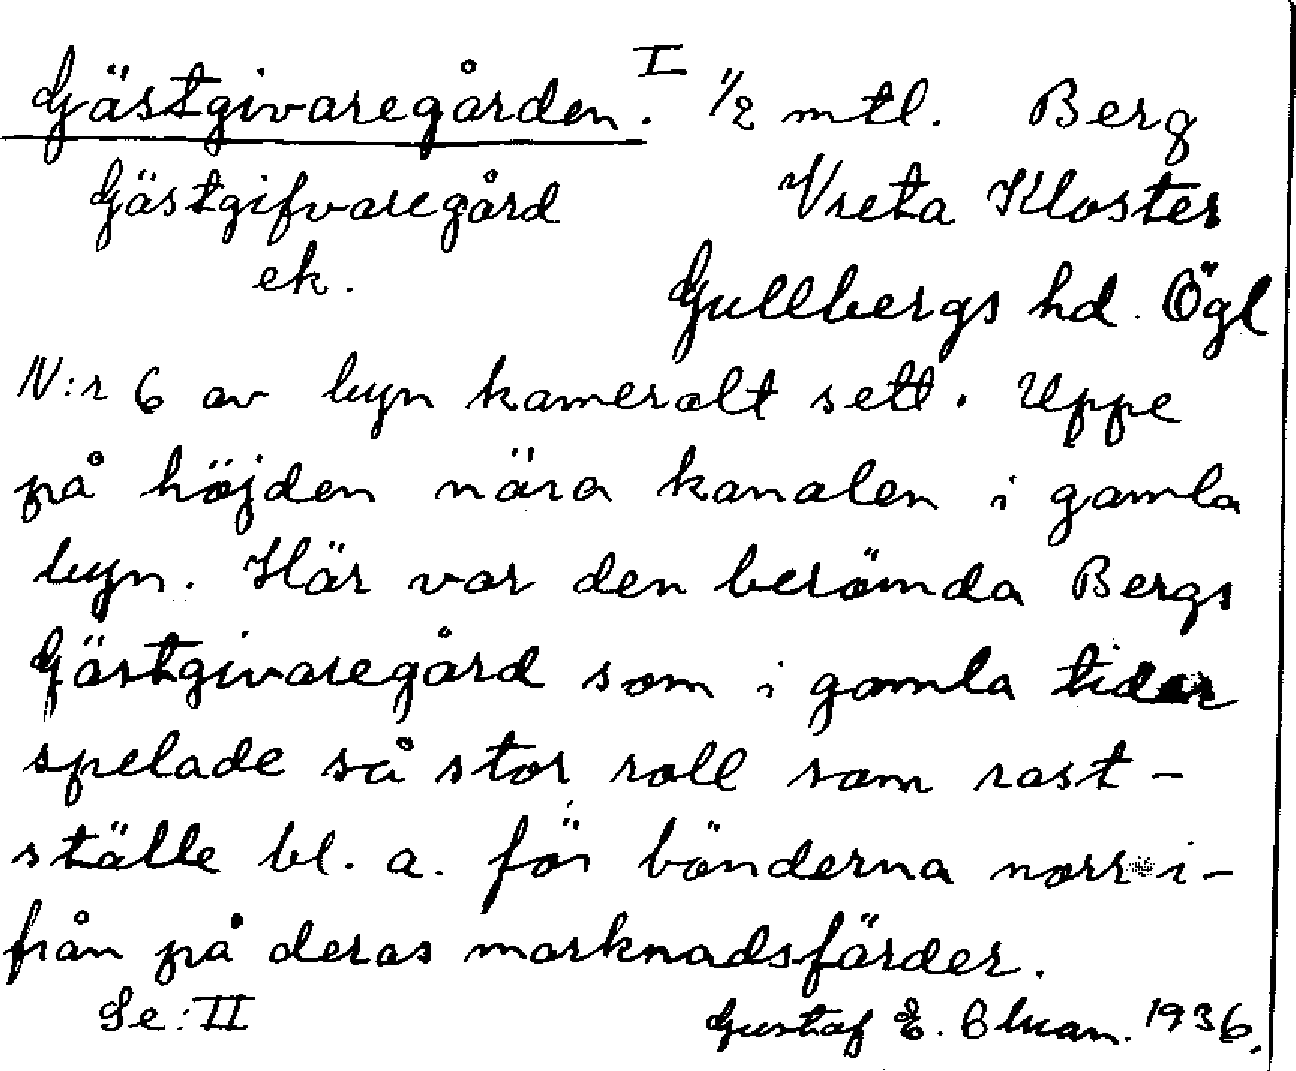 Gästgivaregården. I 1/2 mtl. Berg
Gästgifvaregård Vreta Kloster
ek. Gullbergs hd. Ögl
N:r 6 av byn kameralt sett. Uppe
på höjden nära kanalen i gamla
byn. Här var den berömda Bergs
Gästgivaregård som i gamla tider
spelade så stor roll som rast-
ställe bl. a. för bönderna norri-
från på deras marknadsfärder.
Se: II Gustaf E. 1936.